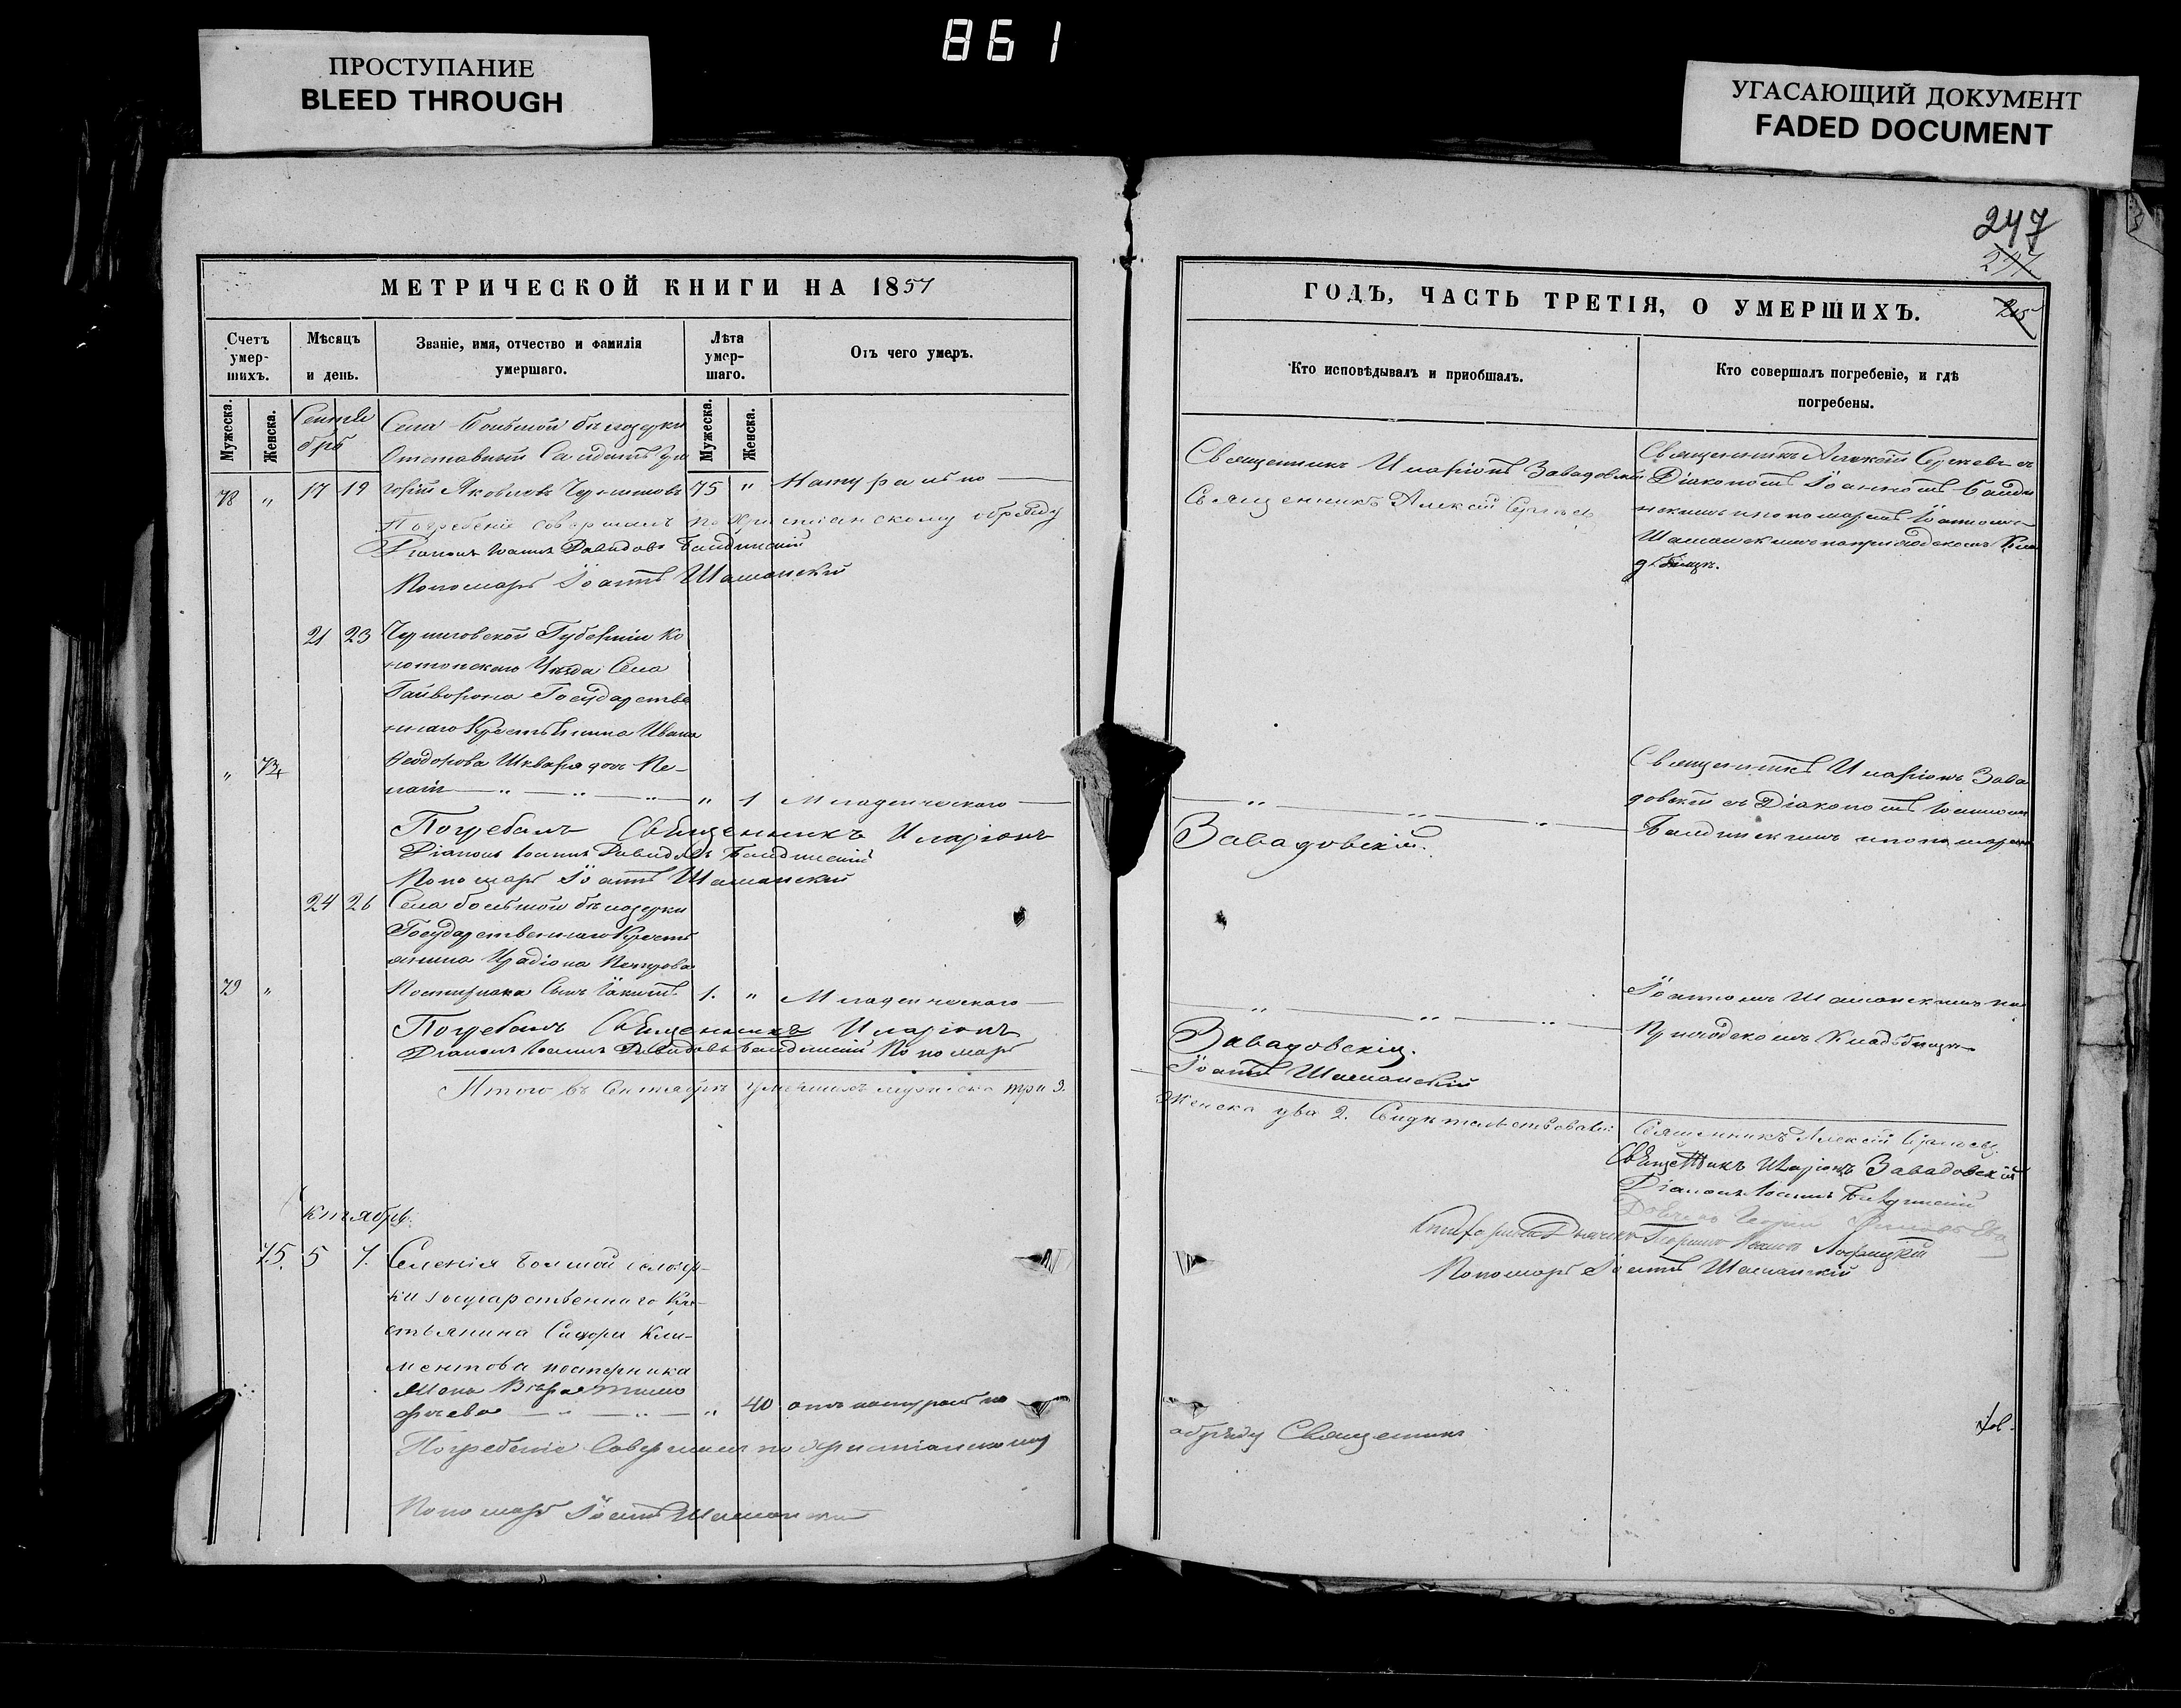 861
ПРОСТУПАНИЕ
BLEED THROUGH
УГАСАЮЩИЙ ДОКУМЕНТ
FADED DOCUMENT
МЕТРИЧЕСКОЙ КНИГИ НА 1857
Счетъ умер-шихъ.
Мѣсяцъ и день.
Званіе, имя, отчество и фамилія умершаго.
Лѣта умер-шаго.
Отъ чего умеръ.
Мужеска.
Женска.
Мужеска.
Женска.
Сентя
брь
Села Большой бѣлозерки
Отставный Салдатъ
78 " 17 19 Яковлевъ 75 " Натурально
Погребеніе совершалъ по Христіанскому обряду
Діаконъ Іоаннъ Давидовъ Бандинскій
Пономарь Іоаннъ Шаманскій
21 23 Черниговской Губерніи Ко
нотопскаго Уѣзда Села
Гайворона Государстве
ннаго Крестьянина Ивана
" 74 Ѳеодорова Шкваря дочь Пе-
лагія " 1 Младенческаго
Погребалъ Священникъ Иларіонъ
Діаконъ Іоаннъ Давидовъ Бандинскій
Пономарь Іоаннъ Шаманскій
24 26 Села большой бѣлозерки
Государственнаго Кресть
янина Иродіона Петрова
79 " Постирнака Сынъ Іакимъ 1. " Младенческаго
Погребалъ Священникъ Иларіонъ
Діаконъ Іоаннъ Давидовъ Бандинскій Пономарь
Итого въ Сентябрѣ умершихъ мужеска три 3.
Октябрь.
75. 5 7. Селенія Большой Белозер-
ки государственнаго Кре-
стьянина Сидора Кли-
ментова постерника
Жена Вѣра Тимо
фѣева " 40 отъ натурально
Погребеніе Совершалъ по Христіанскому
Пономарь Іоаннъ Шаманскій
247
215
ГОДЪ, ЧАСТЬ ТРЕТІЯ, О УМЕРШИХЪ.
Кто исповѣдывалъ и пріобщалъ.
Кто совершалъ погребеніе, и гдѣ погребены.
Священникъ Иларіонъ Завадовскій
Священникъ Алексій
Священникъ Алексій съ
Діакономъ Іоанномъ Банди
нскимъ и пономаремъ Іоанномъ
Шаманскимъ на приходскомъ Кла
дбищѣ.
Священникъ Иларіонъ Зава
довскій съ Діакономъ Іоанномъ
Бандинскимъ и пономаремъ
Завадовскій.
Іоанномъ Шаманскимъ на
Приходскомъ Кладбищѣ
Завадовскій.
Іоаннъ Шаманскій
Женска два 2. Свидѣтельствовали: Священникъ Алексій
Священникъ Иларіонъ Завадовскій
Діаконъ Іоаннъ Бандинскій
Пономарь Іоаннъ Шаманскій
обряду Священникъ